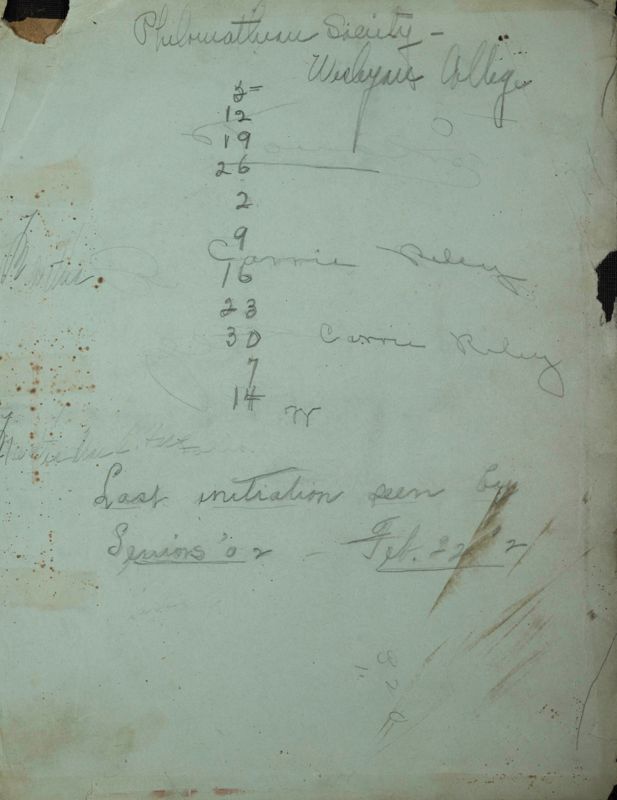 Philomathean Society -
Wesleyan College
5
12
19
26
2
9
Carrie Riley
16
23
30
Carrie Riley
7
14
W
Last initiation seen by
Seniors '02 - Feb. 22 '